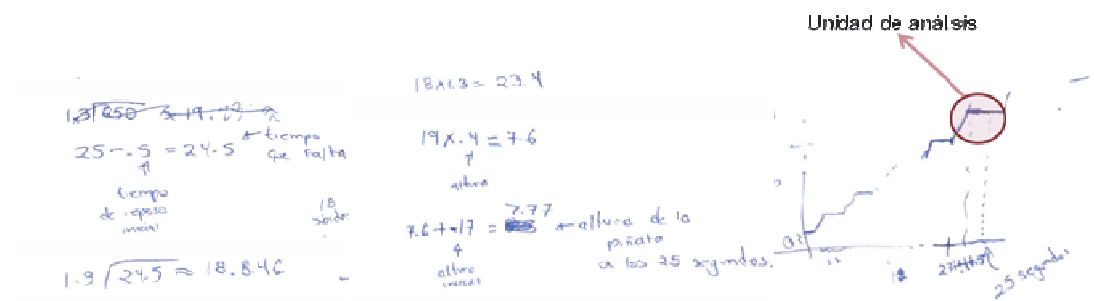 Unidad de análsis
25 - .5 = 24.5
tiempo
que falta
tiempo
de reposo
inicial
1.3 24.5 ≈ 18.846
18
18x1.3 = 23.4
19x.4 = 7.6
altura
7.6+.17 = 7.77 ← altura de la
piñata
a los 25 segundos.
altura
inicial
18
25 segundos